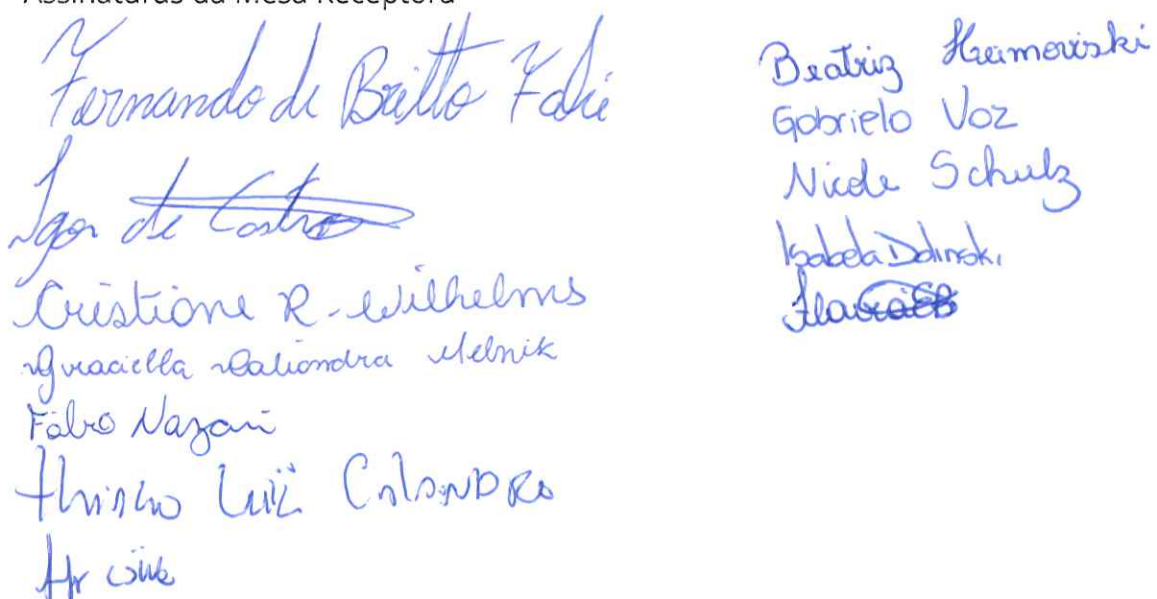 Assinaturas da Mesa Receptora
Fernando de Britto
Igor de Castro
Cristiane R. Wilhelms
Graciella Caliandra Melnik
Fábio Nazari
Thiago Luiz Calandro
Beatriz
Gabriela Voz
Nicole Schulz
Isabela Dolinski